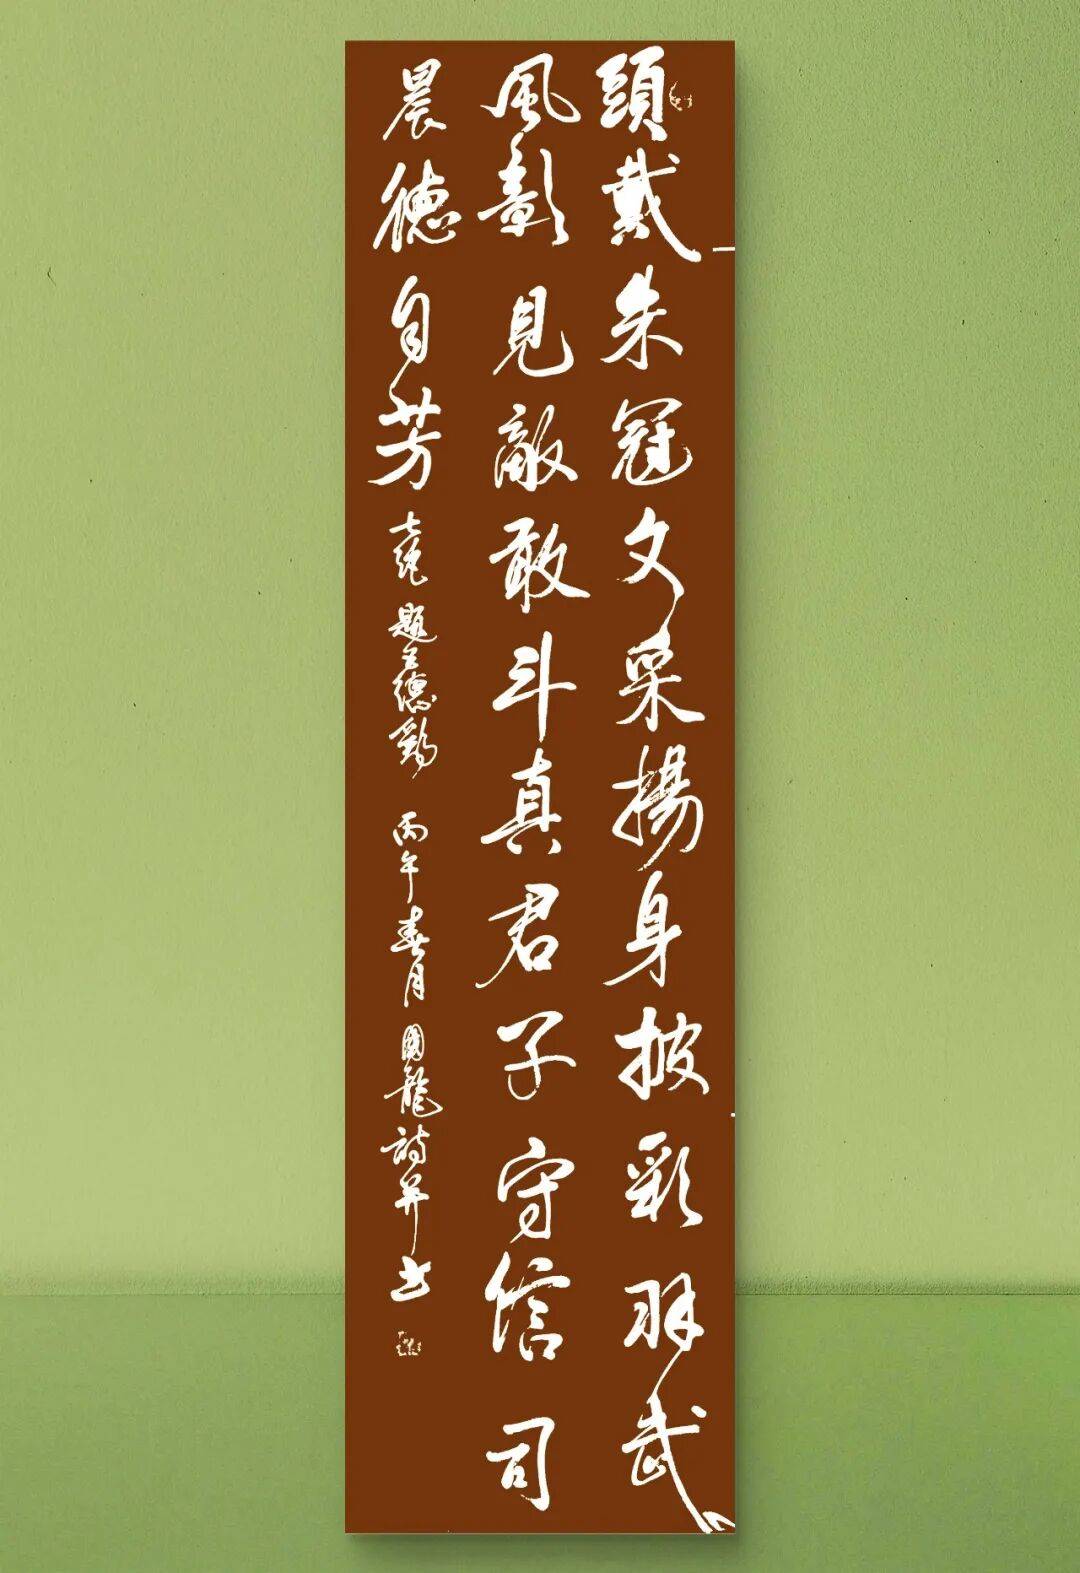 頭戴朱冠文采揚身披彩羽武
風彰見敵敢斗真君子守信司
晨德自芳 七绝 题五德鷄 丙午春月 國龍詩并书